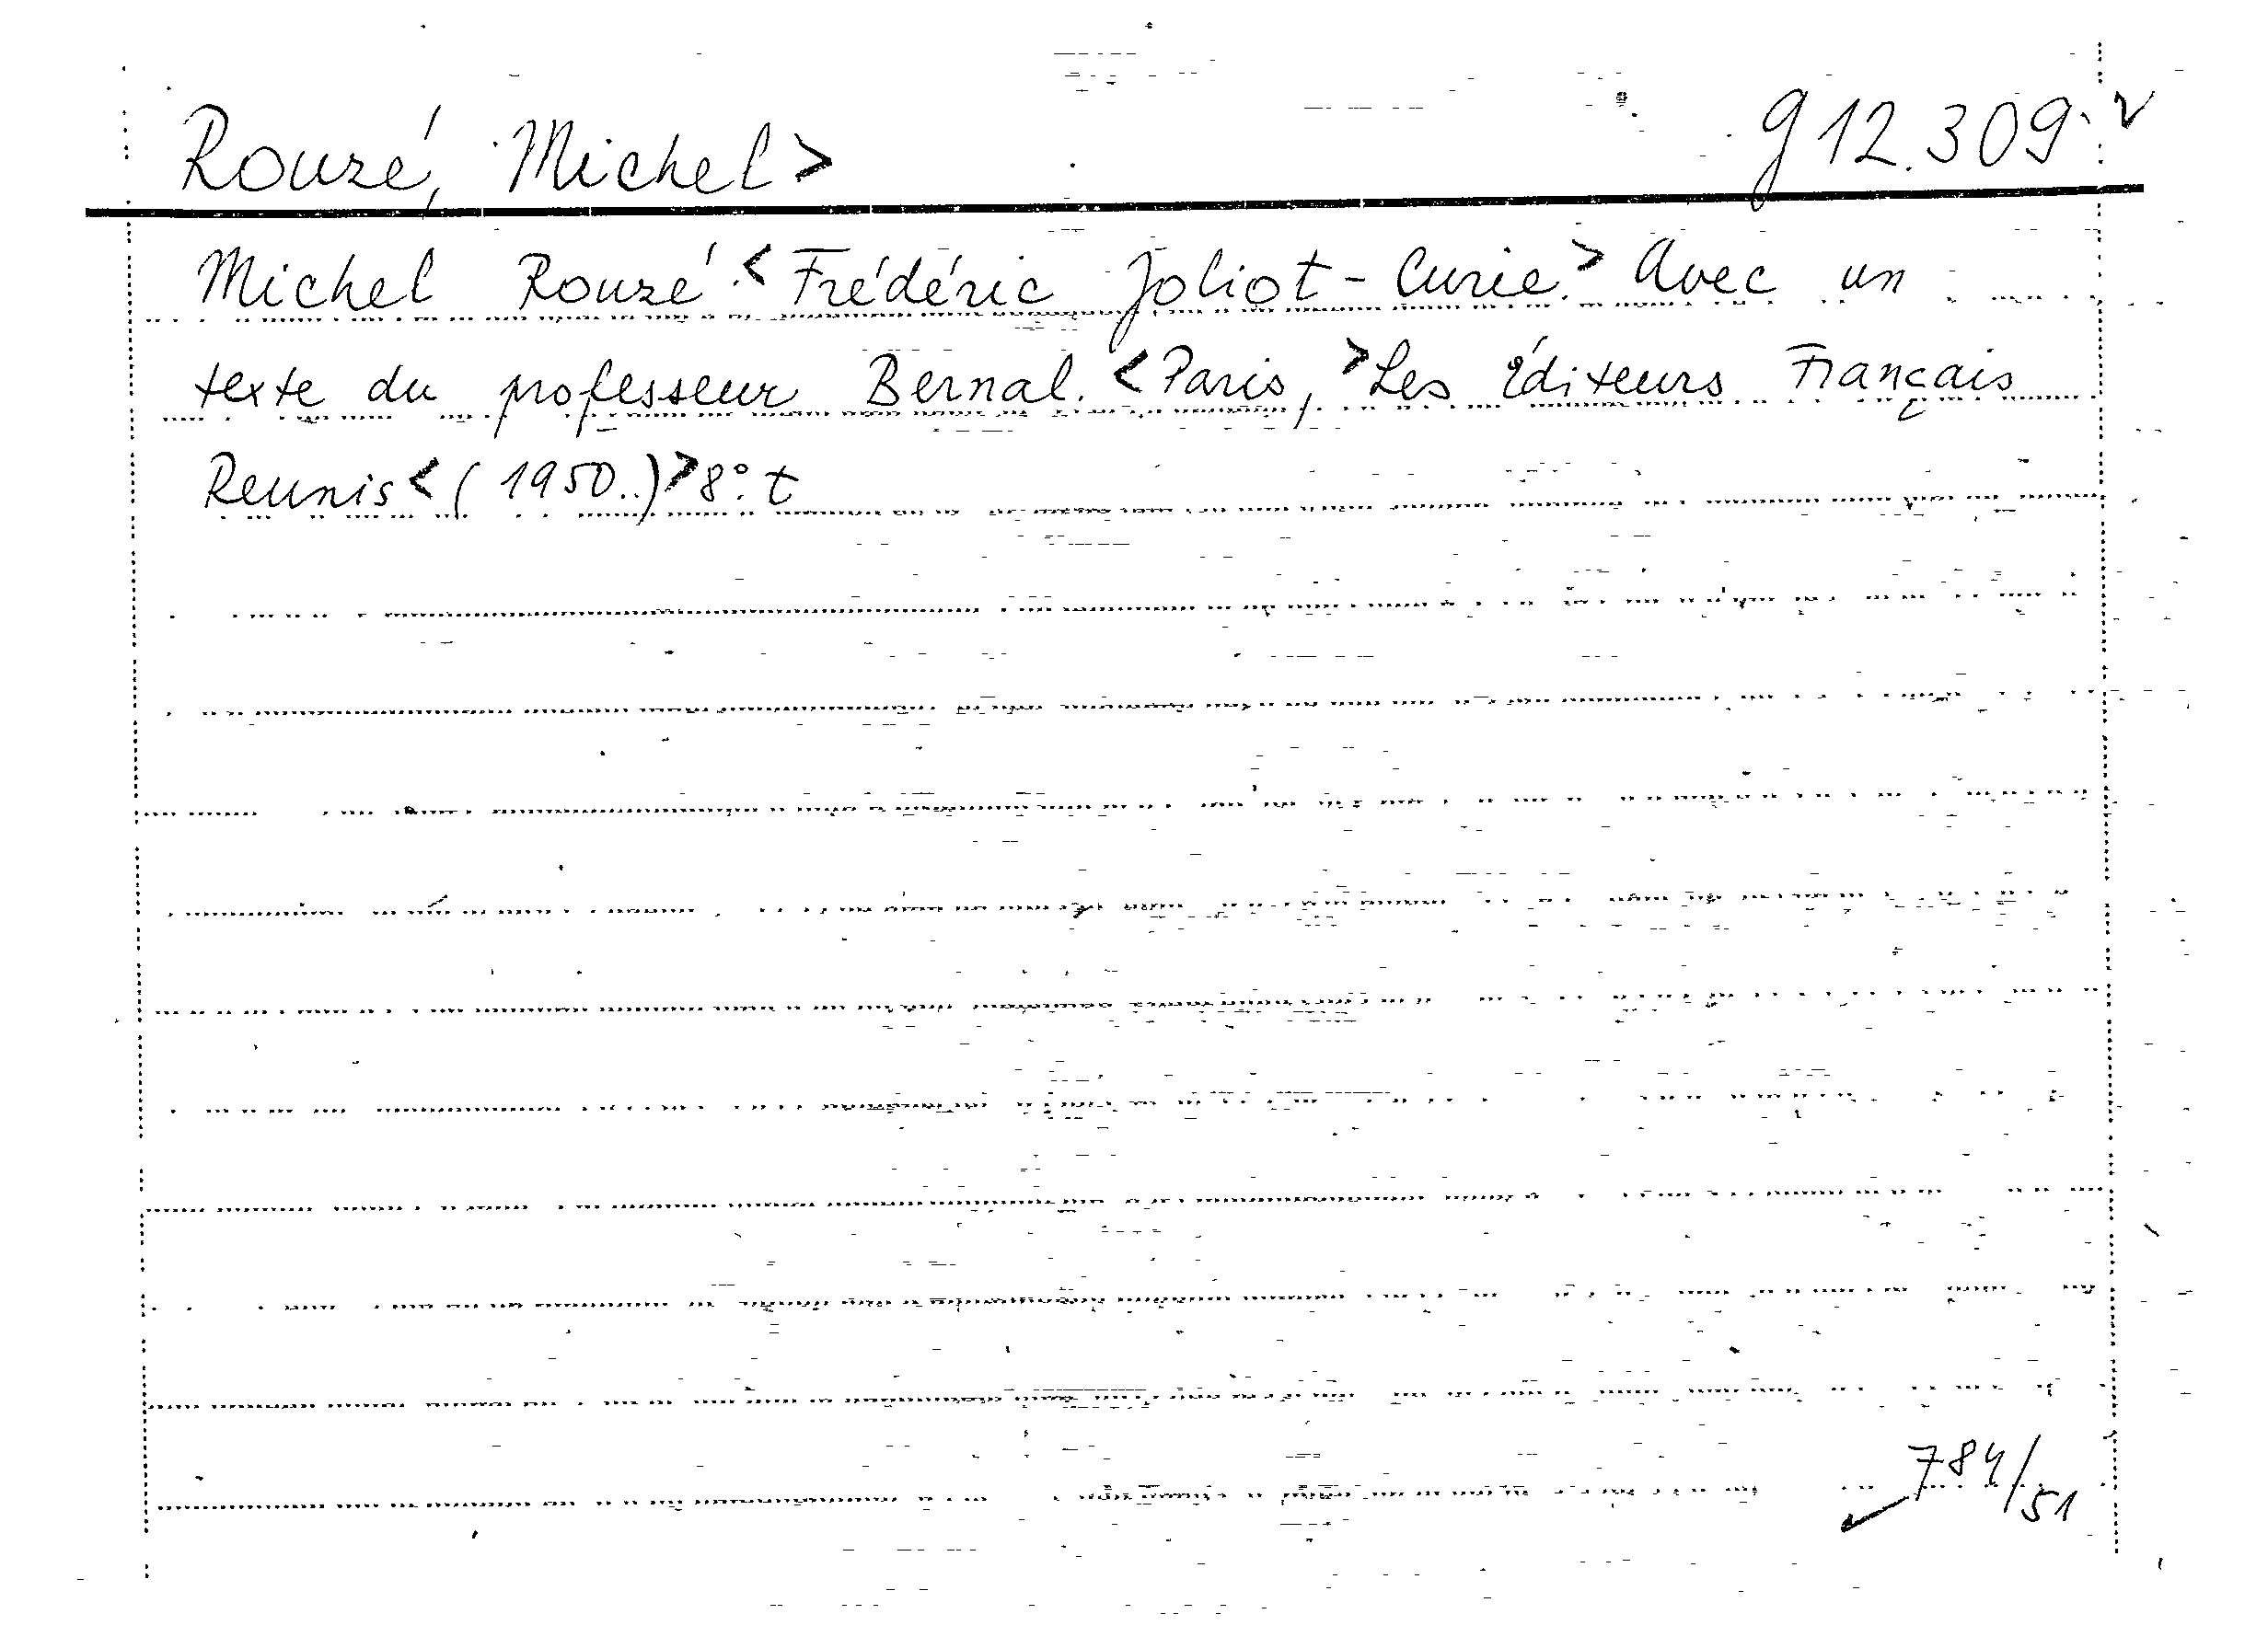 Rouzé, Michel> g 12.309 v
Michel Rouzé. <Frédéric Joliot-Curie.> Avec un
texte du professeur Bernal. <Paris, >Les Éditeurs Français
Reunis <(1950..)> 8°. t
784/51